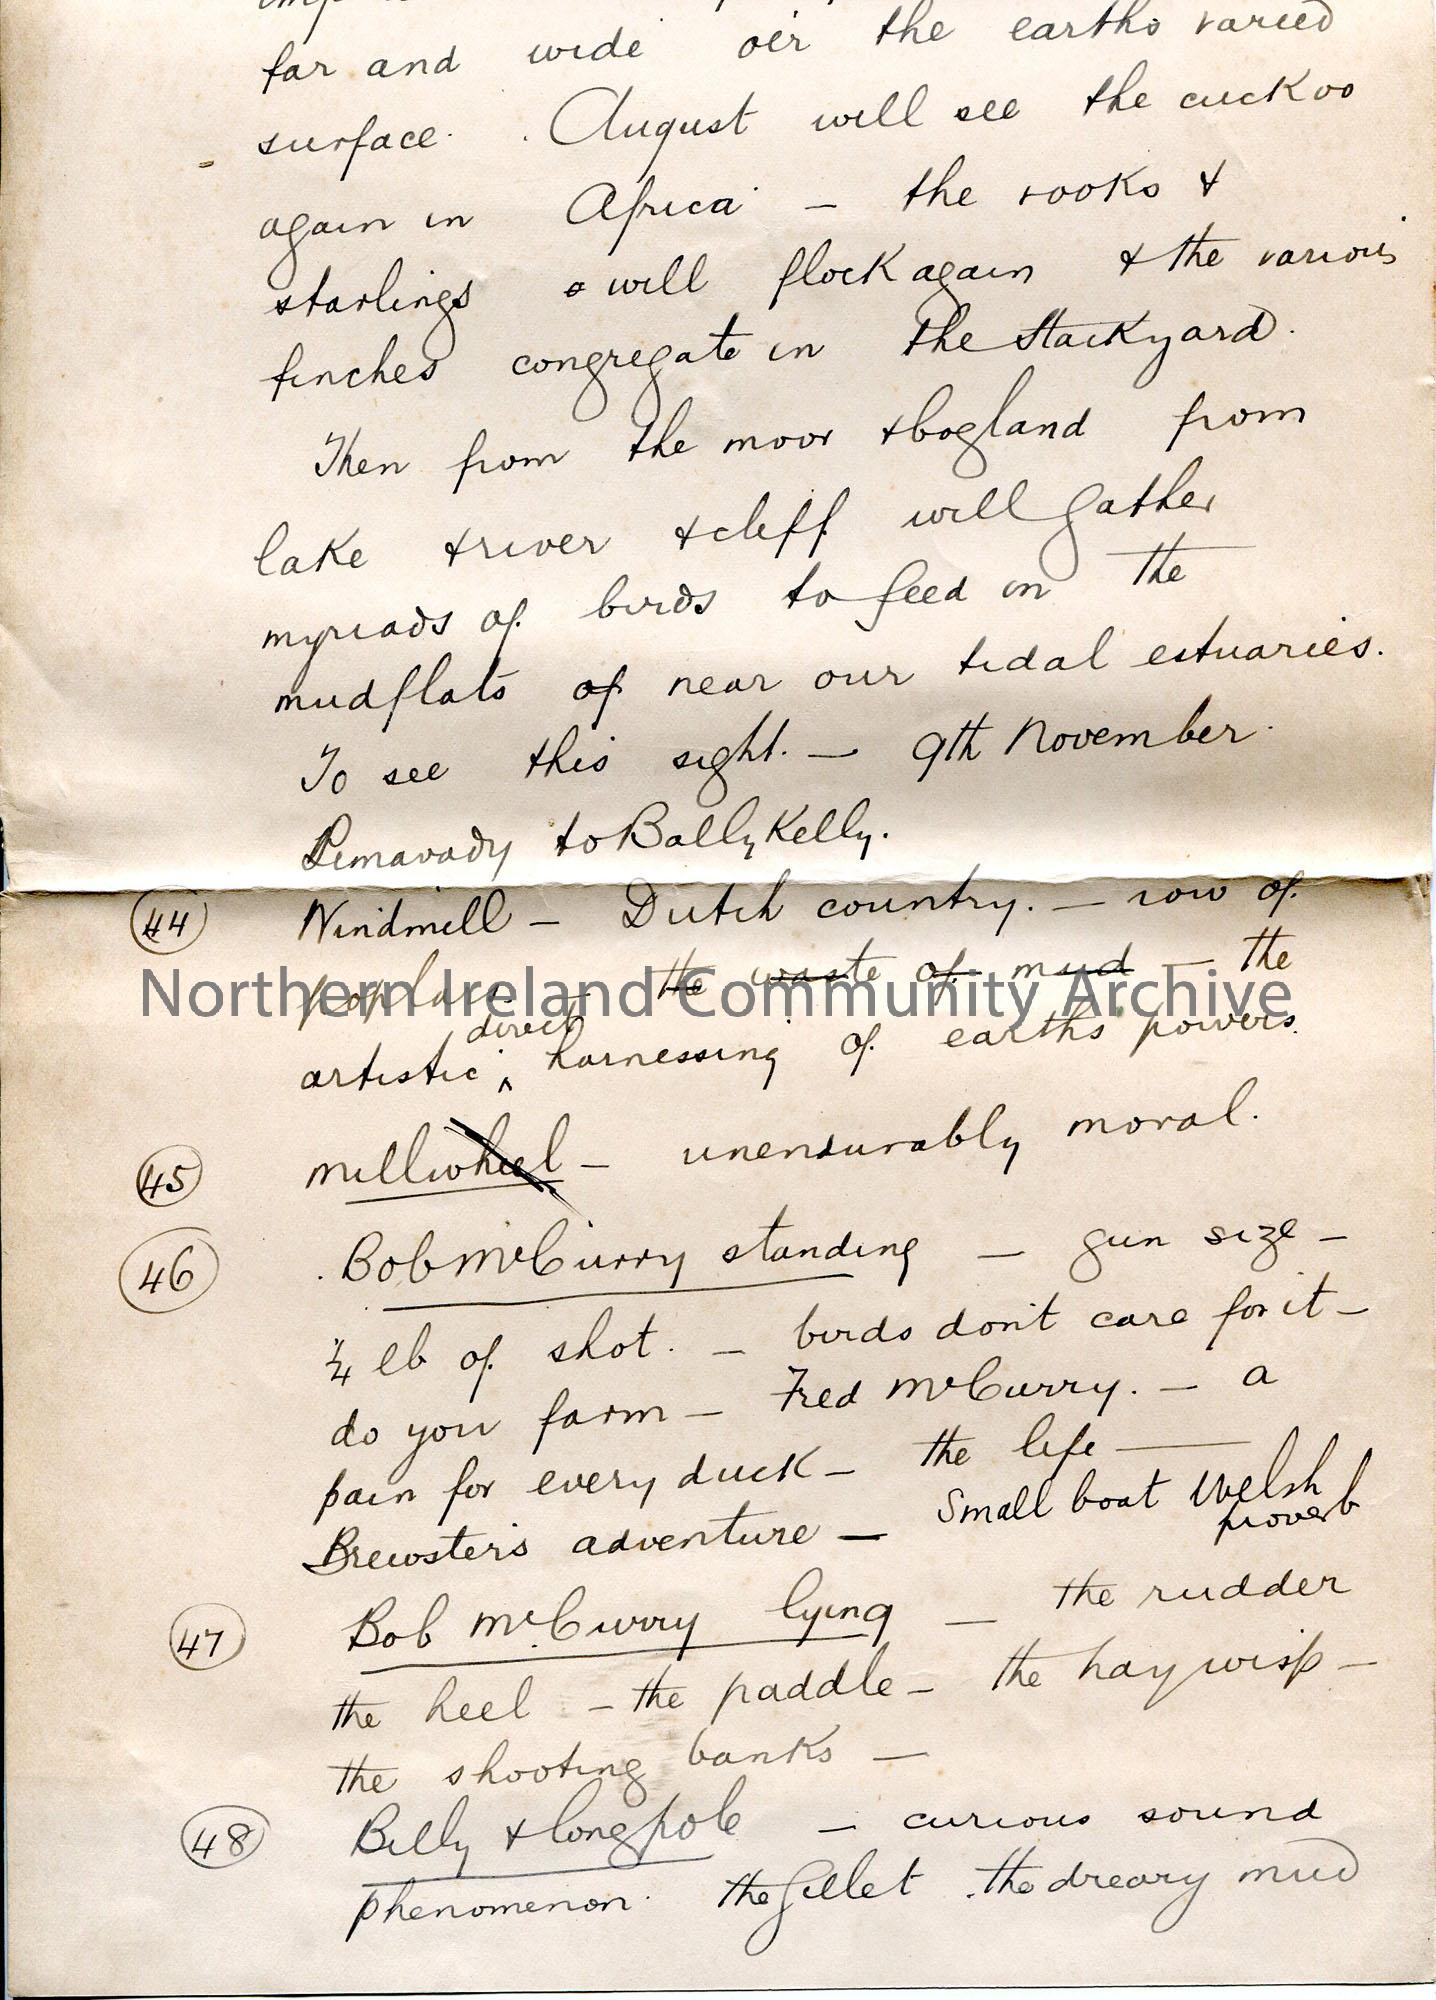 far and wide oér the earths varied
surface. August will see the cuckoo
again in Africa — the rooks &
starlings will flock again & the various
finches congregate in the stackyard.
Then from the moor & bogland from
lake & river & cliff will gather
myriads of birds to feed in the
mudflats of near our tidal estuaries.
To see this sight. — 9th November.
Limavady to Ballykelly.
44 Windmill — Dutch country. — row of
poplars. — the waste of mud — the
direct
artistic ^ harnessing of earths powers.
45 Millwheel — unensurably moral.
46 Bob McCurry standing — gun size —
¼ lb of shot. — birds don't care for it —
do you farm — Fred McCurry. — a
pain for every duck — the life —
Brewster's adventure — Small boat Welsh
proverb
47 Bob McCurry lying — the rudder
the heel — the paddle — the hay wisp —
the shooting banks —
48 Billy & long pole — curious sound
phenomenon. the Gillet . the dreary mud
Northern Ireland Community Archive